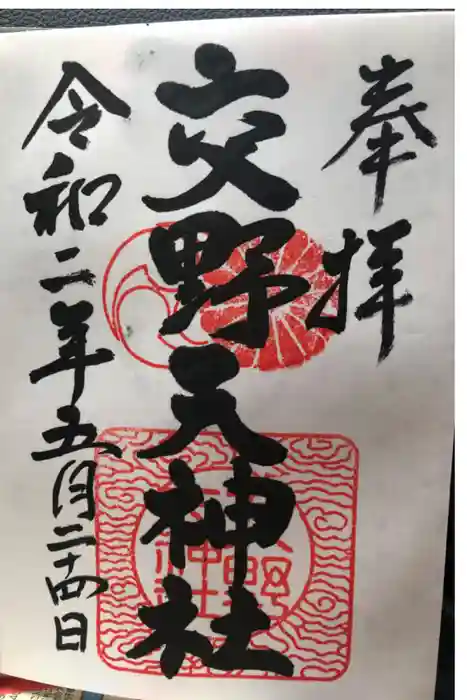 奉拝
交野天神社
令和二年五月二十四日